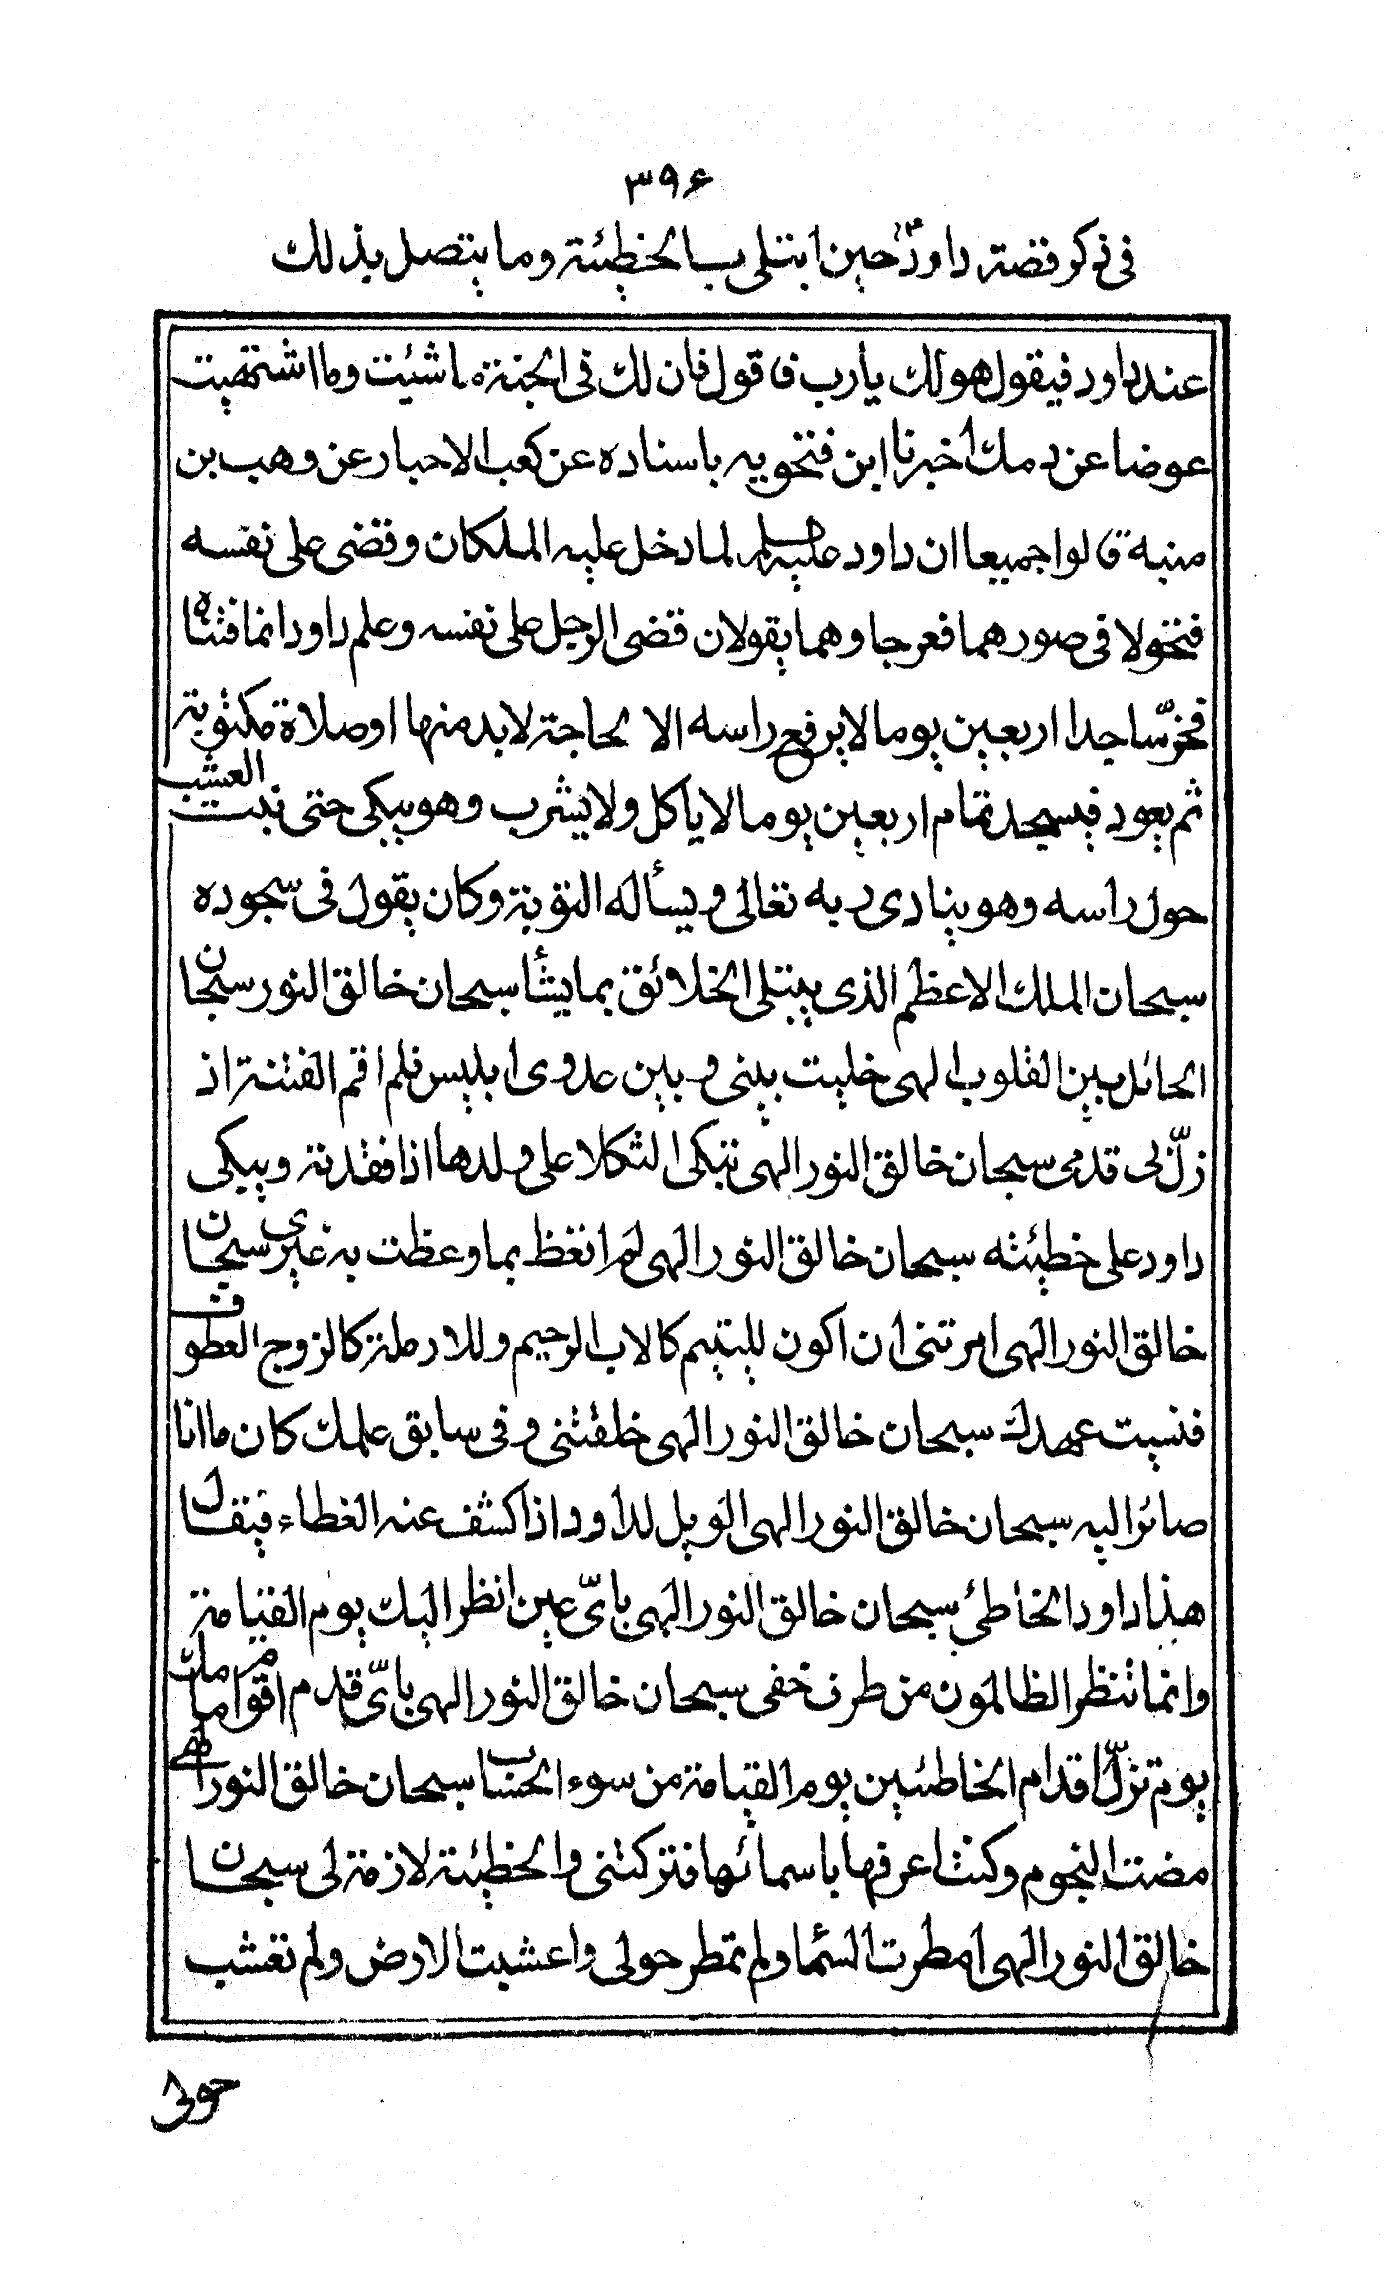 ۳۹۶
في ذكر قصة داود حين ابتلى بالخطيئة وما يتصل بذلك
عند داود فيقول هو لك يارب فاقول فان لك في الجنة ما شئيت وما اشتهيت
عوضا عن دمك أخبرنا ابن فتحويه باسناده عن كعب الاحبار عن وهب بن
منبه قالوا جميعا ان داود عليه السلام لما دخل عليه الملكان وقضى على نفسه
فتحولا في صورهما فعرجا وهما يقولان قضى الرجل على نفسه وعلم داود انما فتناه
فخرّ ساجدا اربعين يوما لا يرفع راسه الا لحاجة لابد منها او صلاة مكتوبة
ثم يعود فيسجد تمام اربعين يوما لا ياكل ولا يشرب وهو يبكى حتى نبت العشب
حول راسه وهو ينادى ربه تعالى ويسأله التوبة وكان يقول في سجوده
سبحان الملك الاعظم الذى يبتلى الخلائق بما يشأ سبحان خالق النور سبحان
الحائل بين القلوب الهى خليت بينى وبين عدوى ابليس فلم اقم الفتنة اذ
زلّ بى قدمى سبحان خالق النور الهى تبكى الثكلا على ولدها اذا فقدته ويبكى
داود على خطيئته سبحان خالق النور الهى لم اتعظ بما وعظت به غيرى سبحان
خالق النور الهى امرتنى ان اكون لليتيم كالاب الرحيم وللارملة كالزوج العطوف
فنسيت عهدك سبحان خالق النور الهى خلقتنى وفى سابق علمك كان ما انا
صائر اليه سبحان خالق النور الهى الويل لداود اذا كشف عنه الغطاء فيقال
هذا داود الخاطئ سبحان خالق النور الهى باىّ عين انظر اليك يوم القيامة
وانما تنظر الظالمون من طرف خفى سبحان خالق النور الهى باىّ قدم اقوم امامك
يوم تزلّ اقدام الخاطئين يوم القيامة من سوء الحساب سبحان خالق النور الهى
مضت النجوم وكنت اعرفها باسمائها فتركتنى والخطيئة لازمة لى سبحان
خالق النور الهى امطرت السما ولم تمطر حولى واعشبت الارض ولم تعشب
حولى